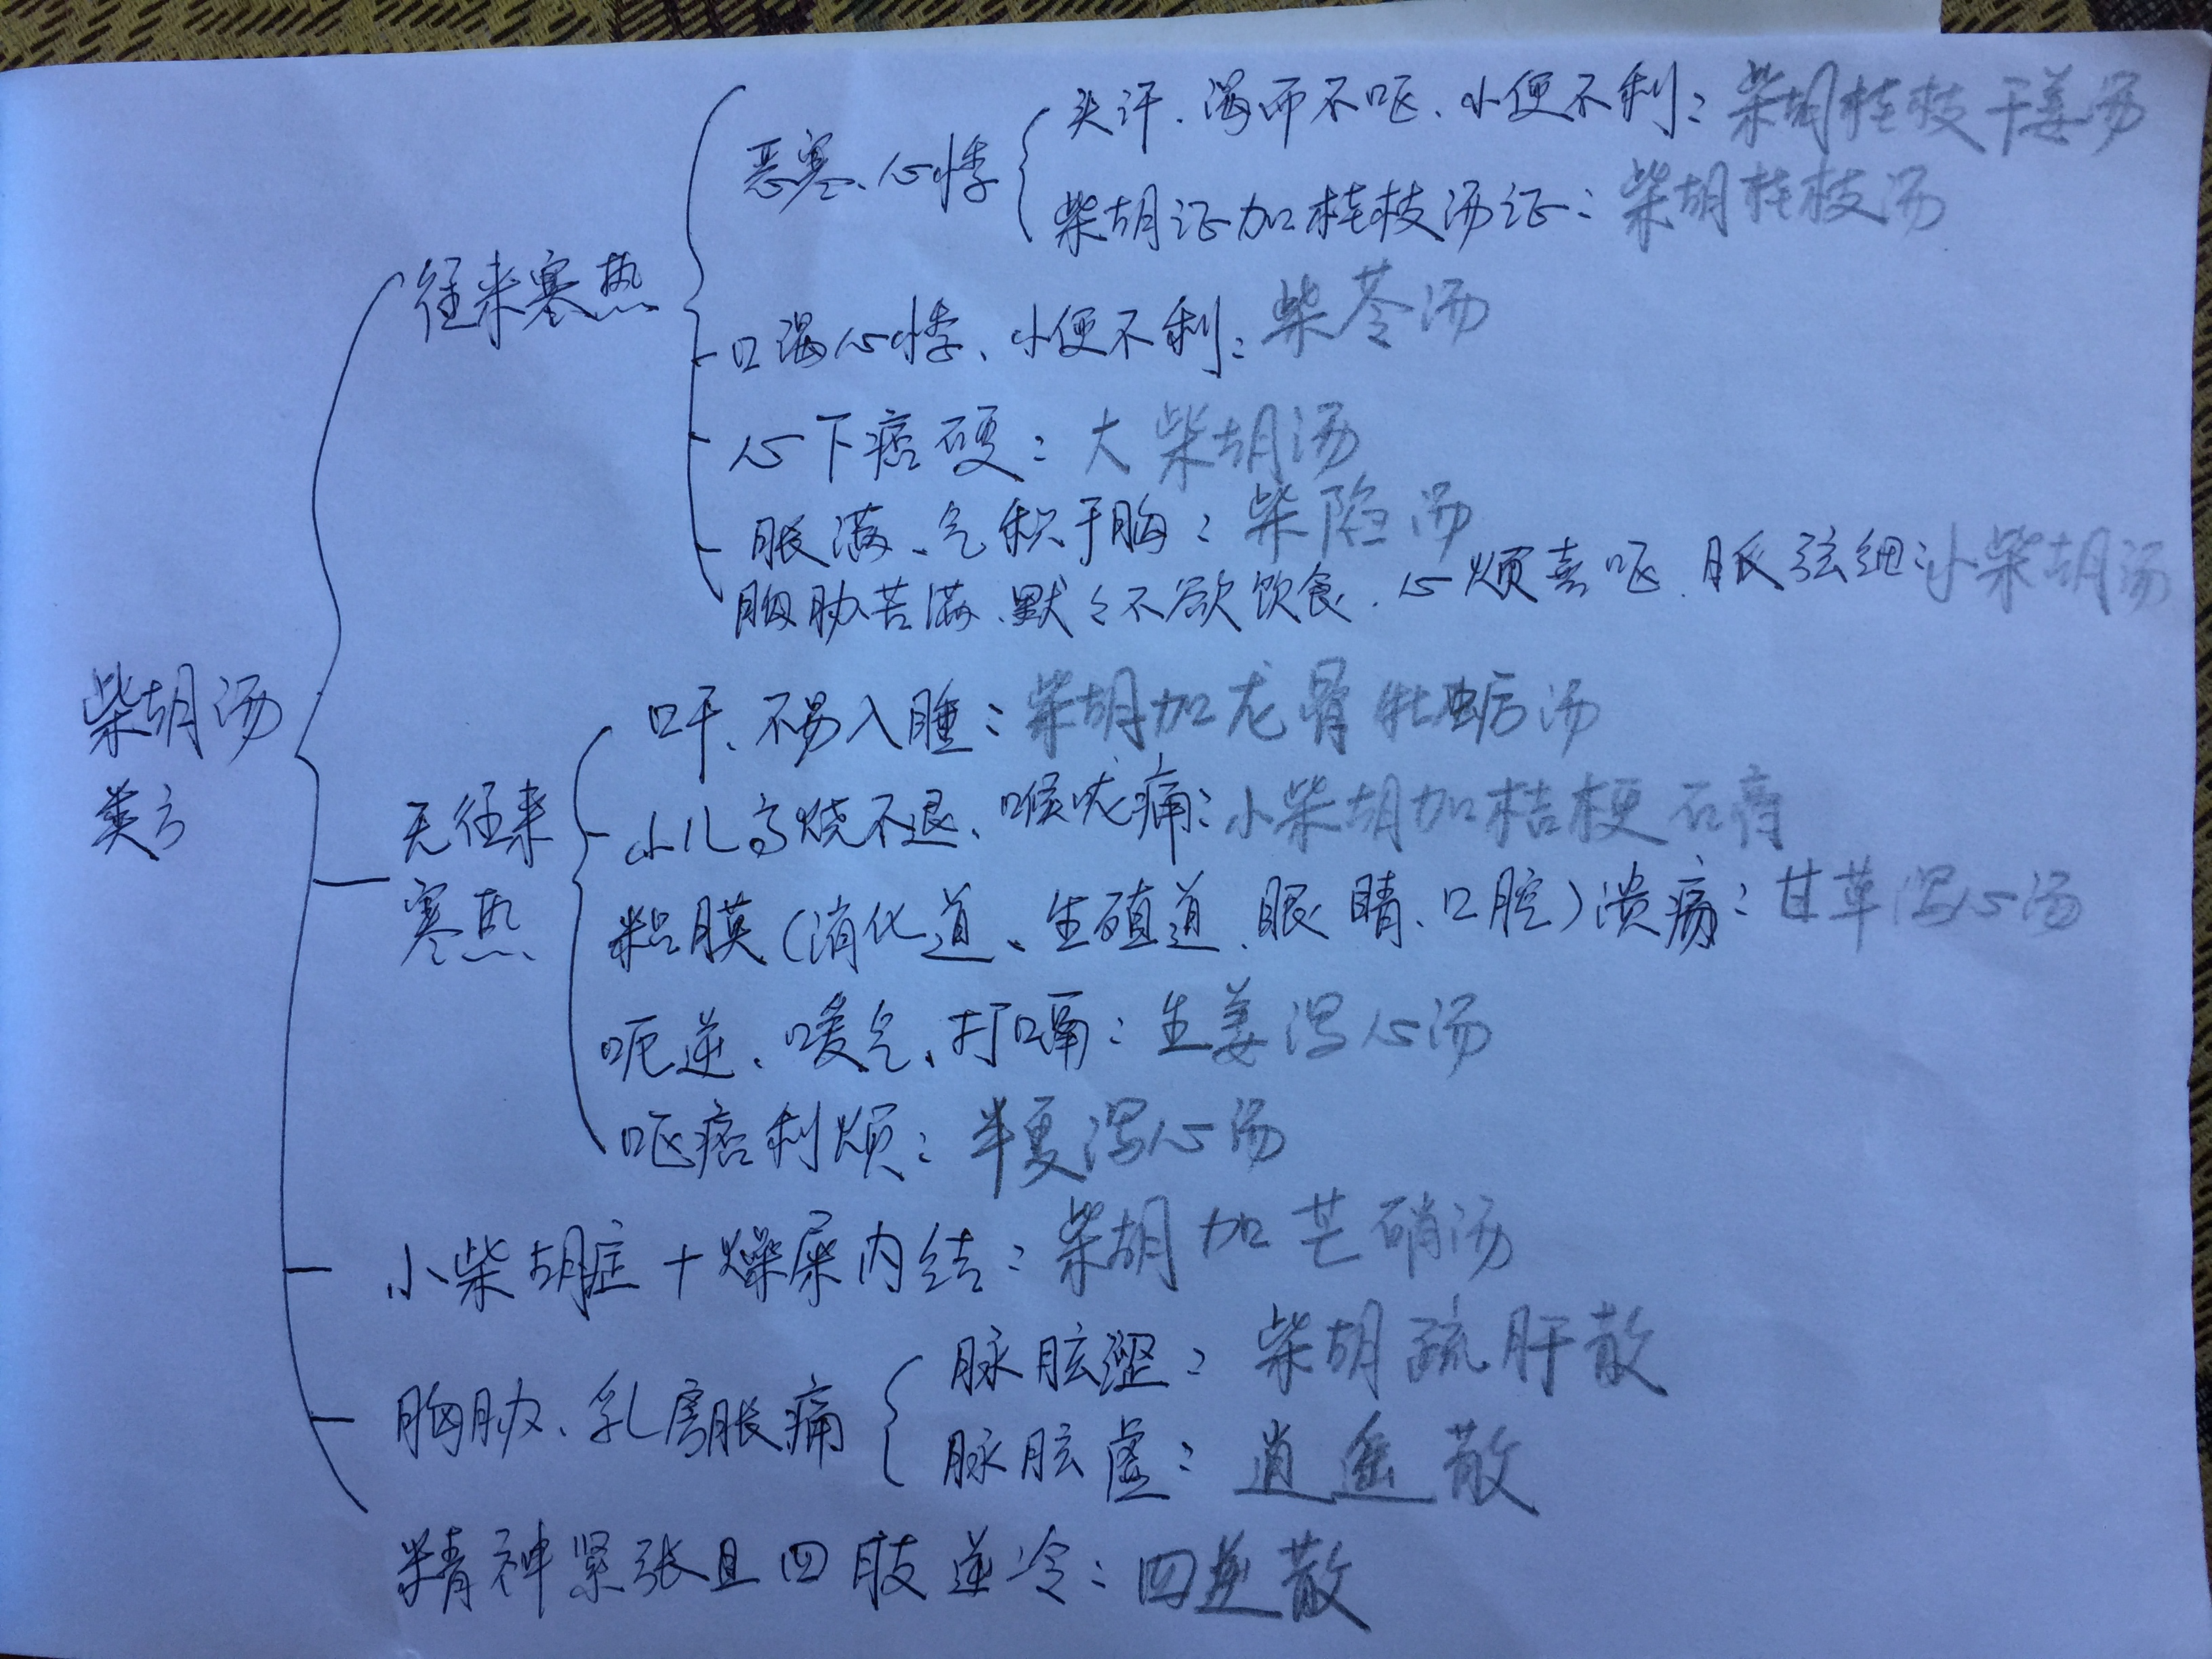 恶寒、心悸
头汗、渴而不呕、小便不利：柴胡桂枝干姜汤
柴胡证加桂枝汤证：柴胡桂枝汤
往来寒热
口渴心悸、小便不利：柴苓汤
心下痞硬：大柴胡汤
胀满、气积于胸：柴陷汤
胸胁苦满、默々不欲饮食、心烦喜呕、脉弦细：小柴胡汤
柴胡汤
类方
口干、不易入睡：柴胡加龙骨牡蛎汤
无往来
寒热
小儿高烧不退、喉咙痛：小柴胡加桔梗石膏
粘膜（消化道、生殖道、眼睛、口腔）溃疡：甘草泻心汤
呃逆、嗳气、打嗝：生姜泻心汤
呕痞利烦：半夏泻心汤
小柴胡症+燥屎内结：柴胡加芒硝汤
胸胁、乳房胀痛
脉胘涩：柴胡疏肝散
脉胘虚：逍遥散
精神紧张且四肢逆冷：四逆散